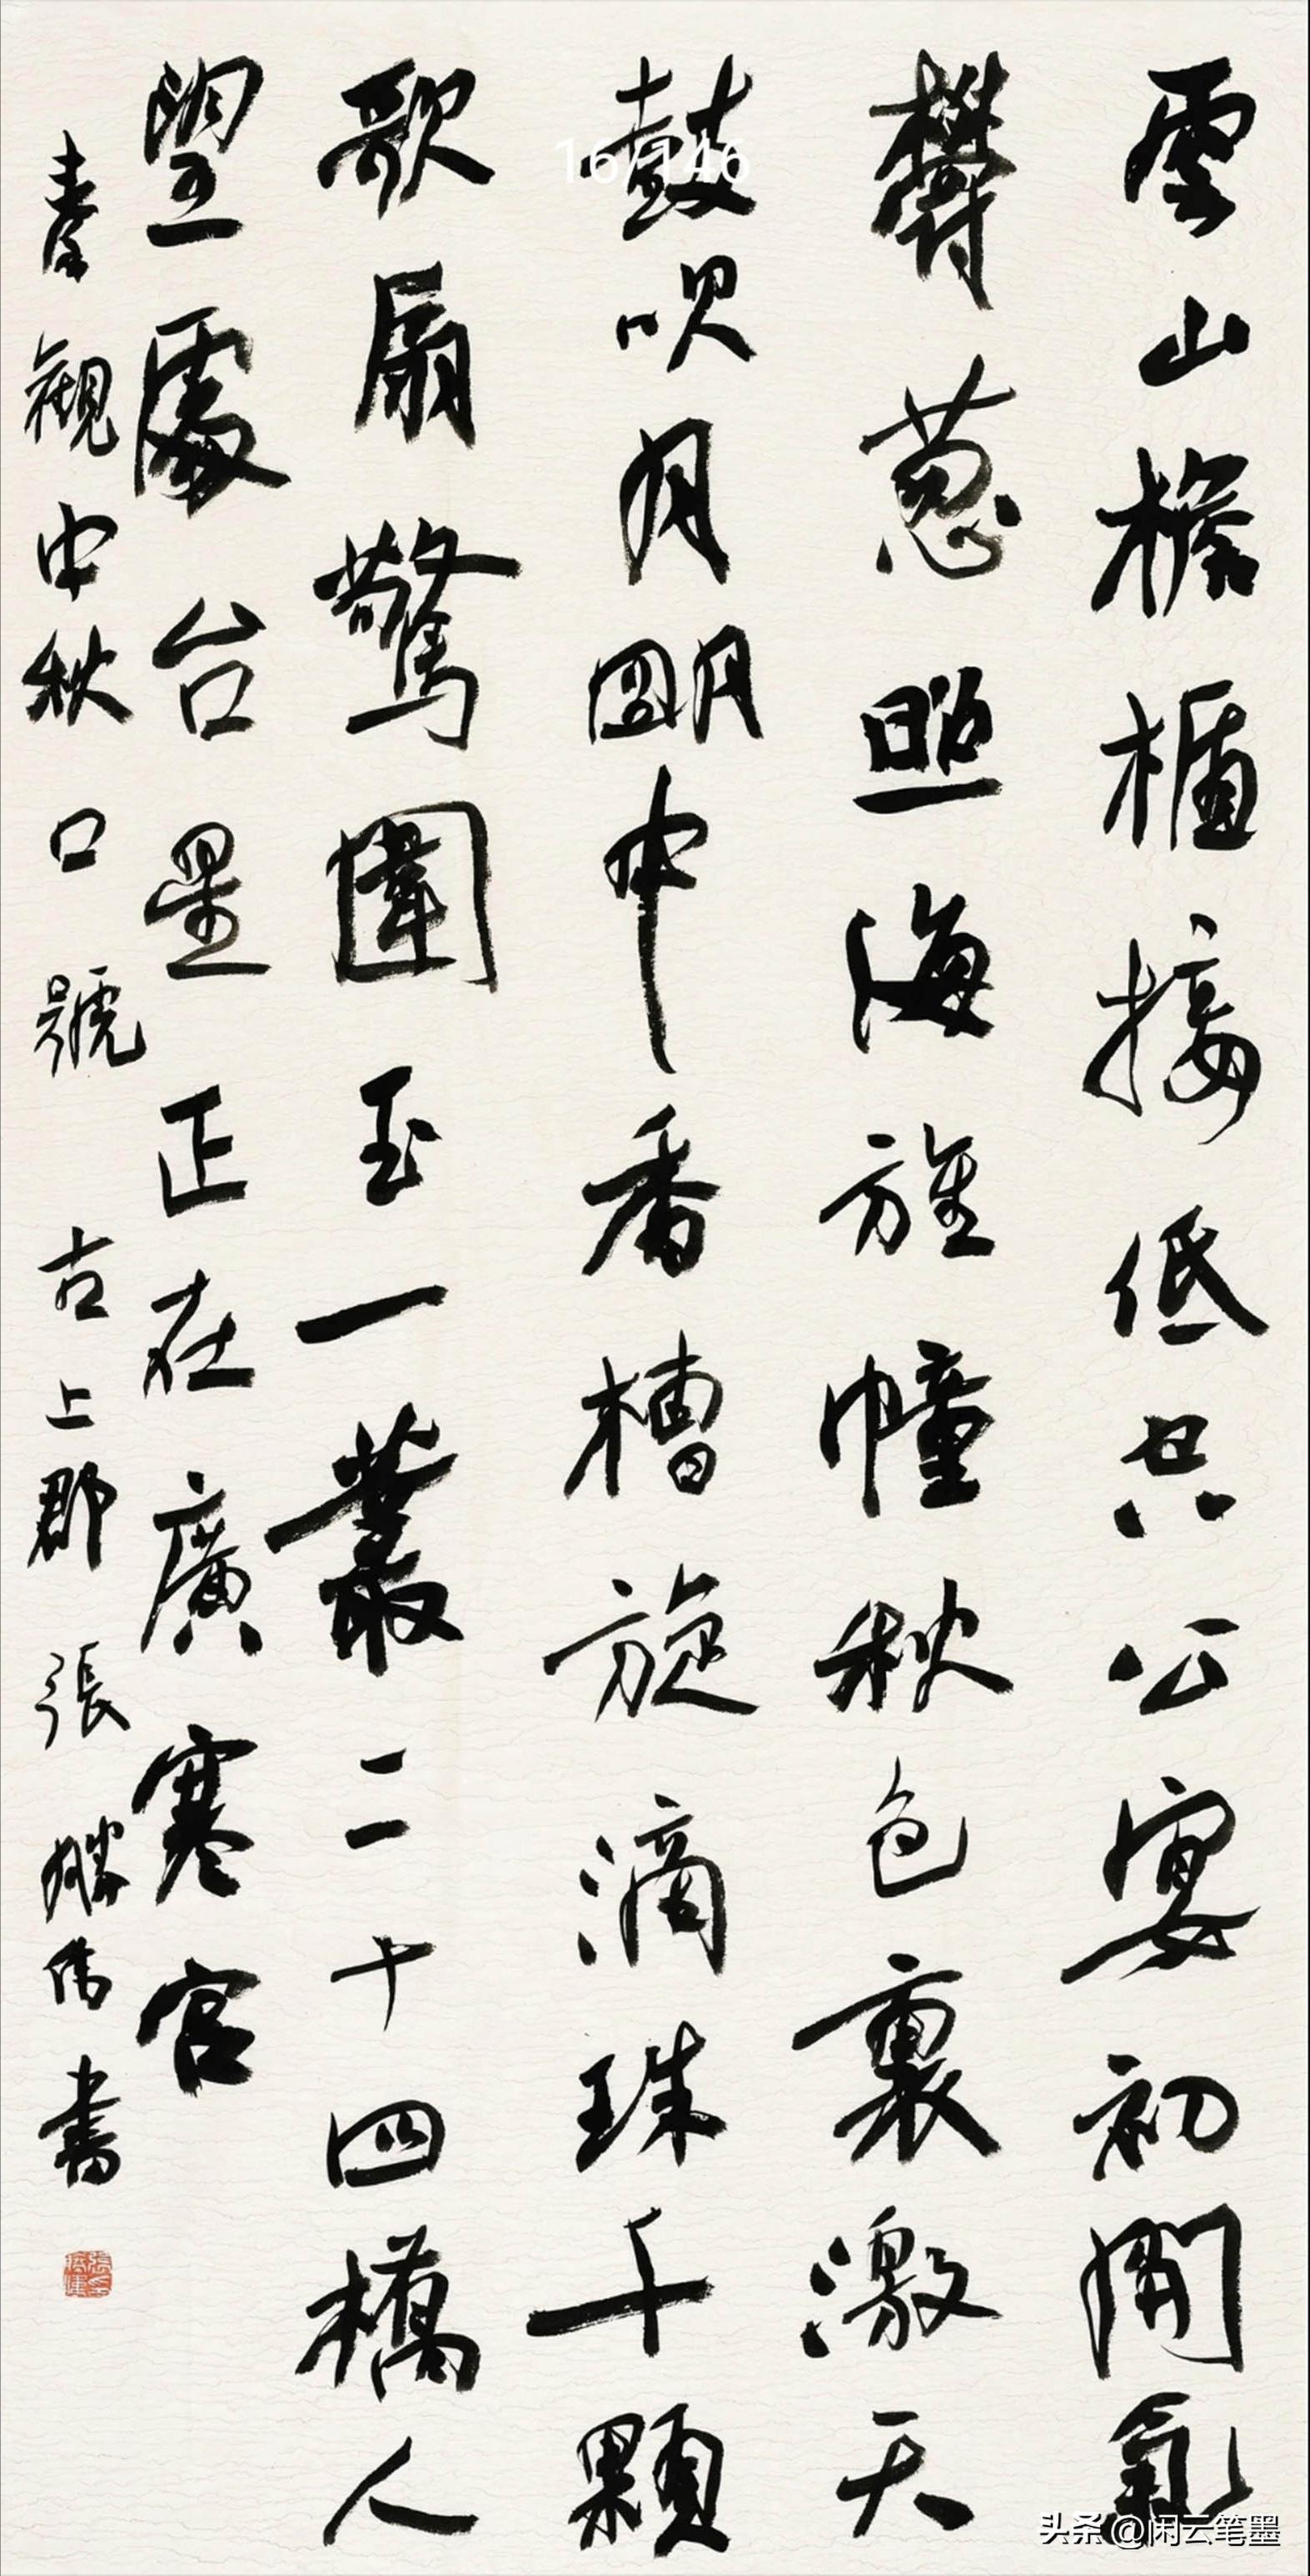 雲山檐楯接低空公宴初開氣
鬱葱照海旌幢秋色裏激天
鼓吹月明中香槽旋滴珠千顆
歌扇驚圍玉一叢二十四橋人
望處台星正在廣寒宮
秦觀中秋口號 古上郡張勝偉書
16/146
头条@闲云笔墨